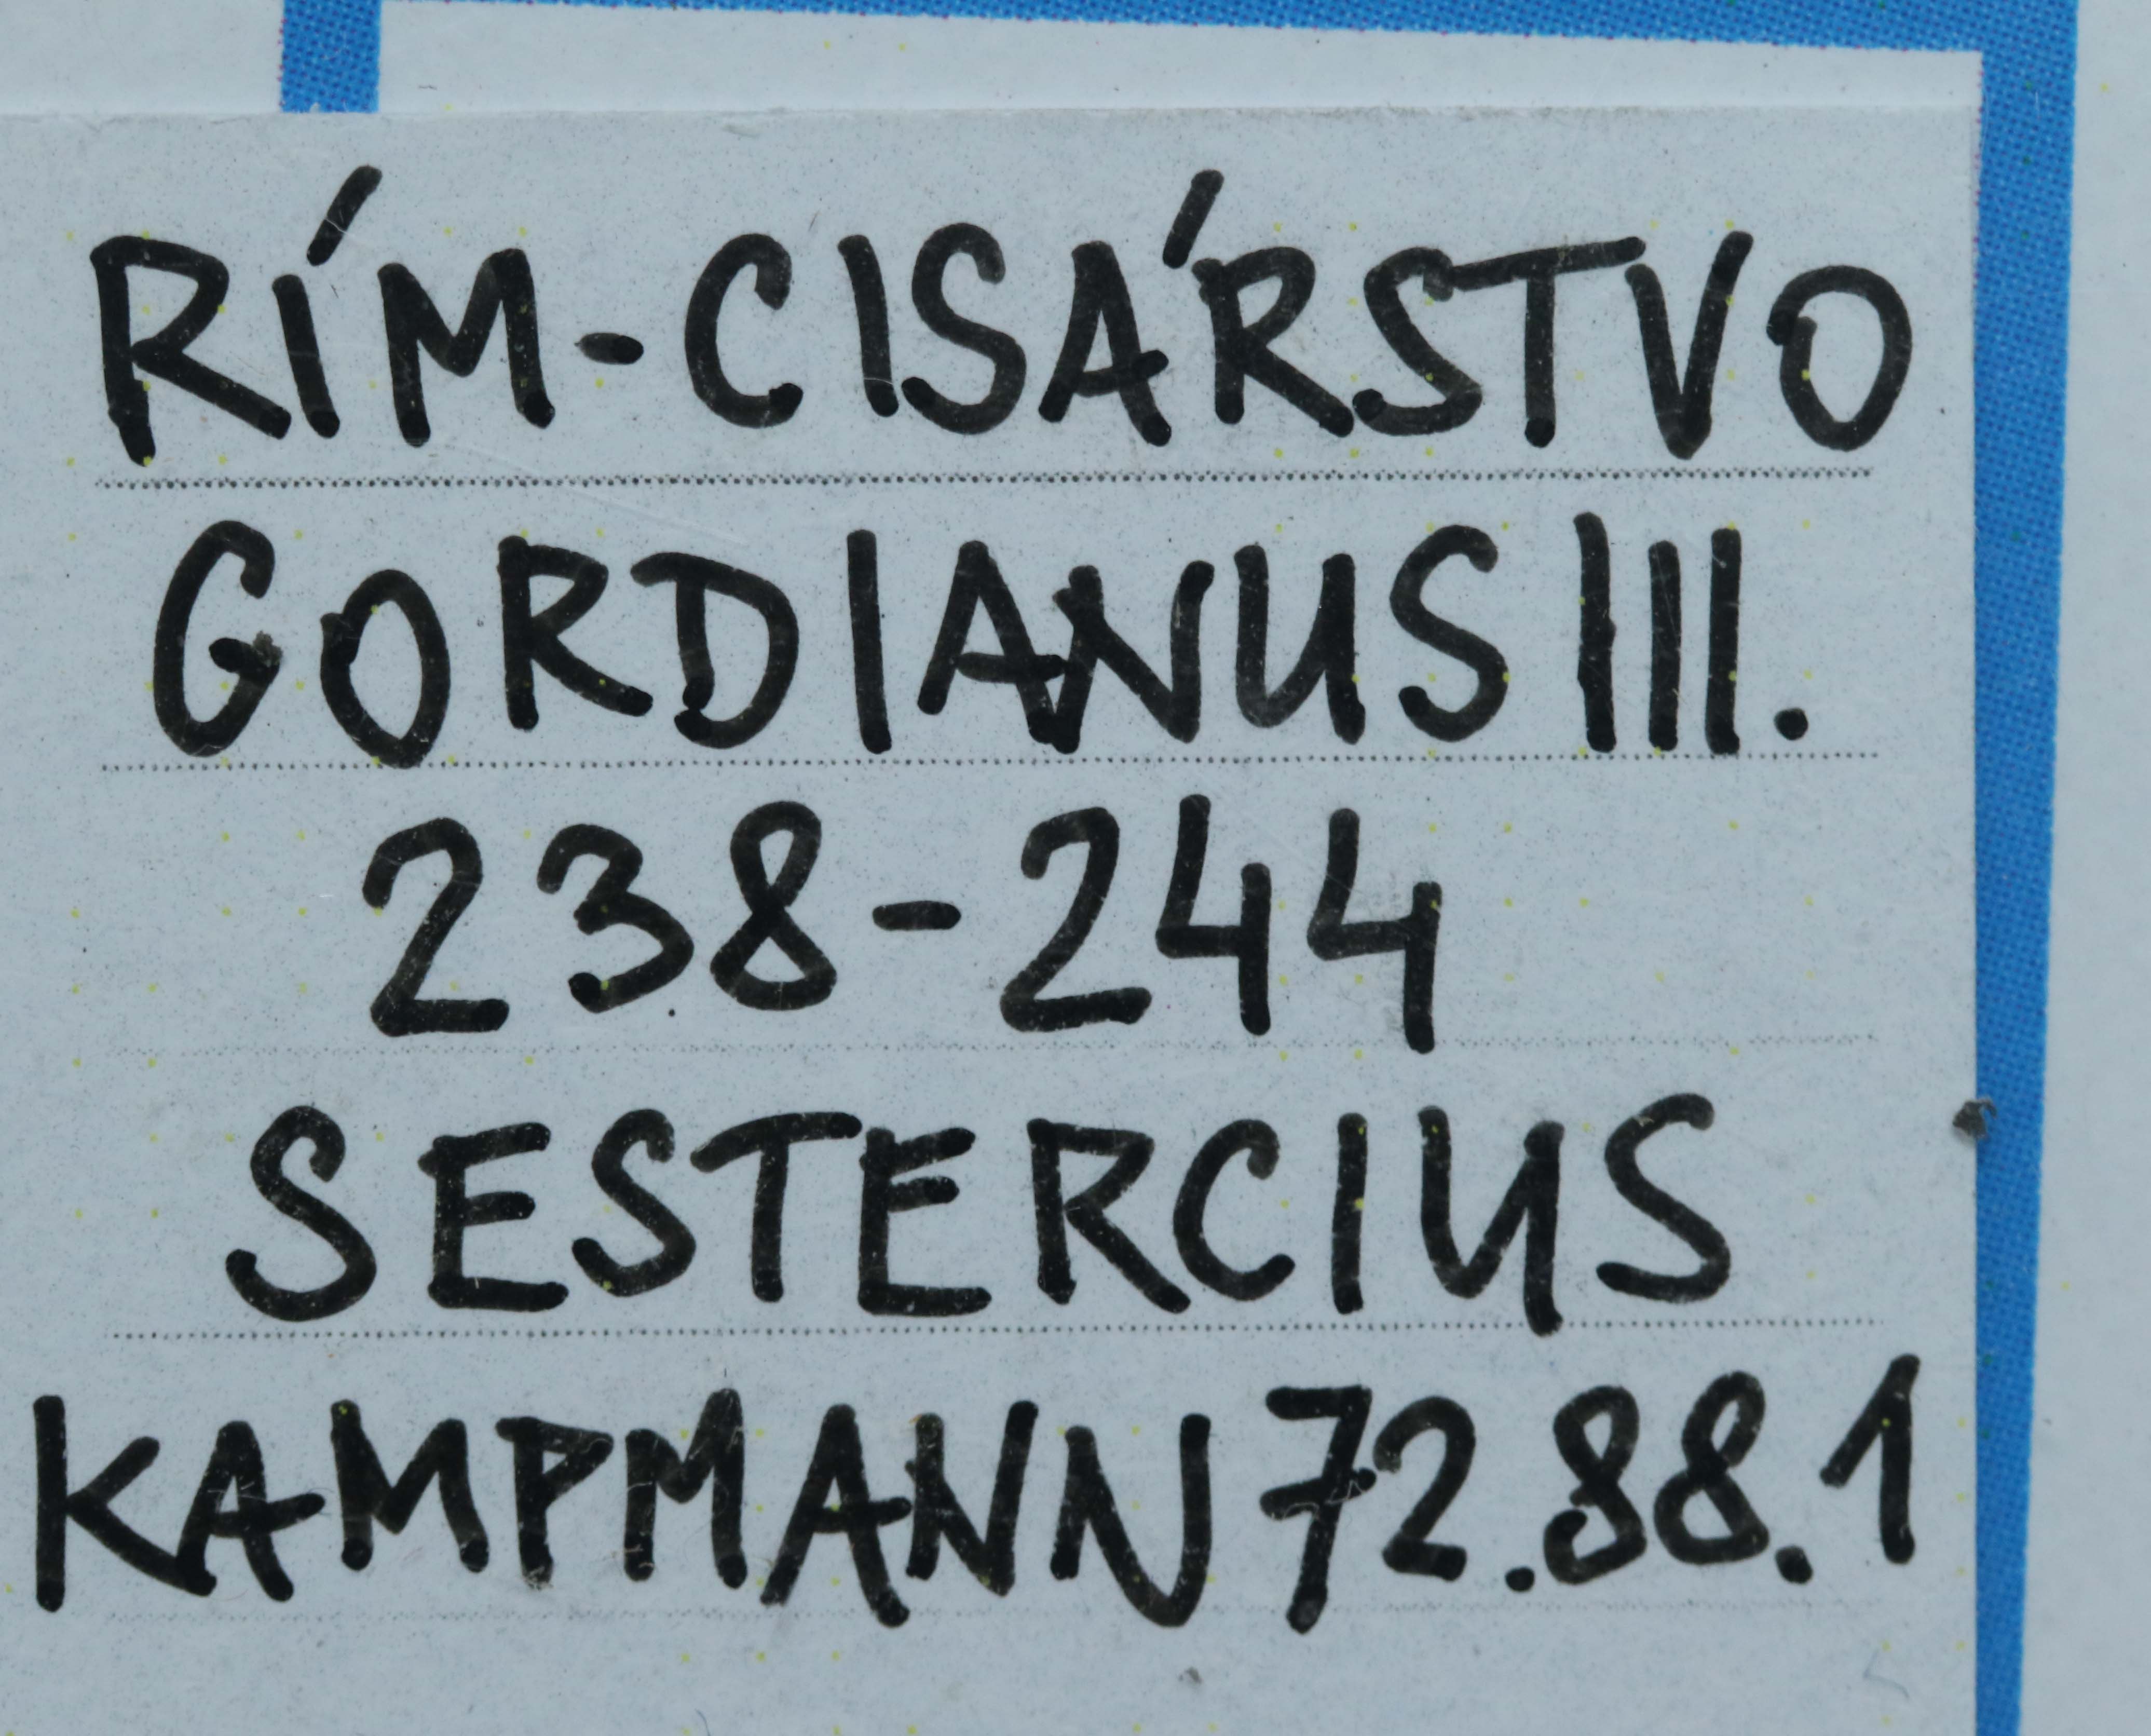 RÍM-CISÁRSTVO
GORDIANUS III.
238-244
SESTERCIUS
KAMPMANN 72.88.1